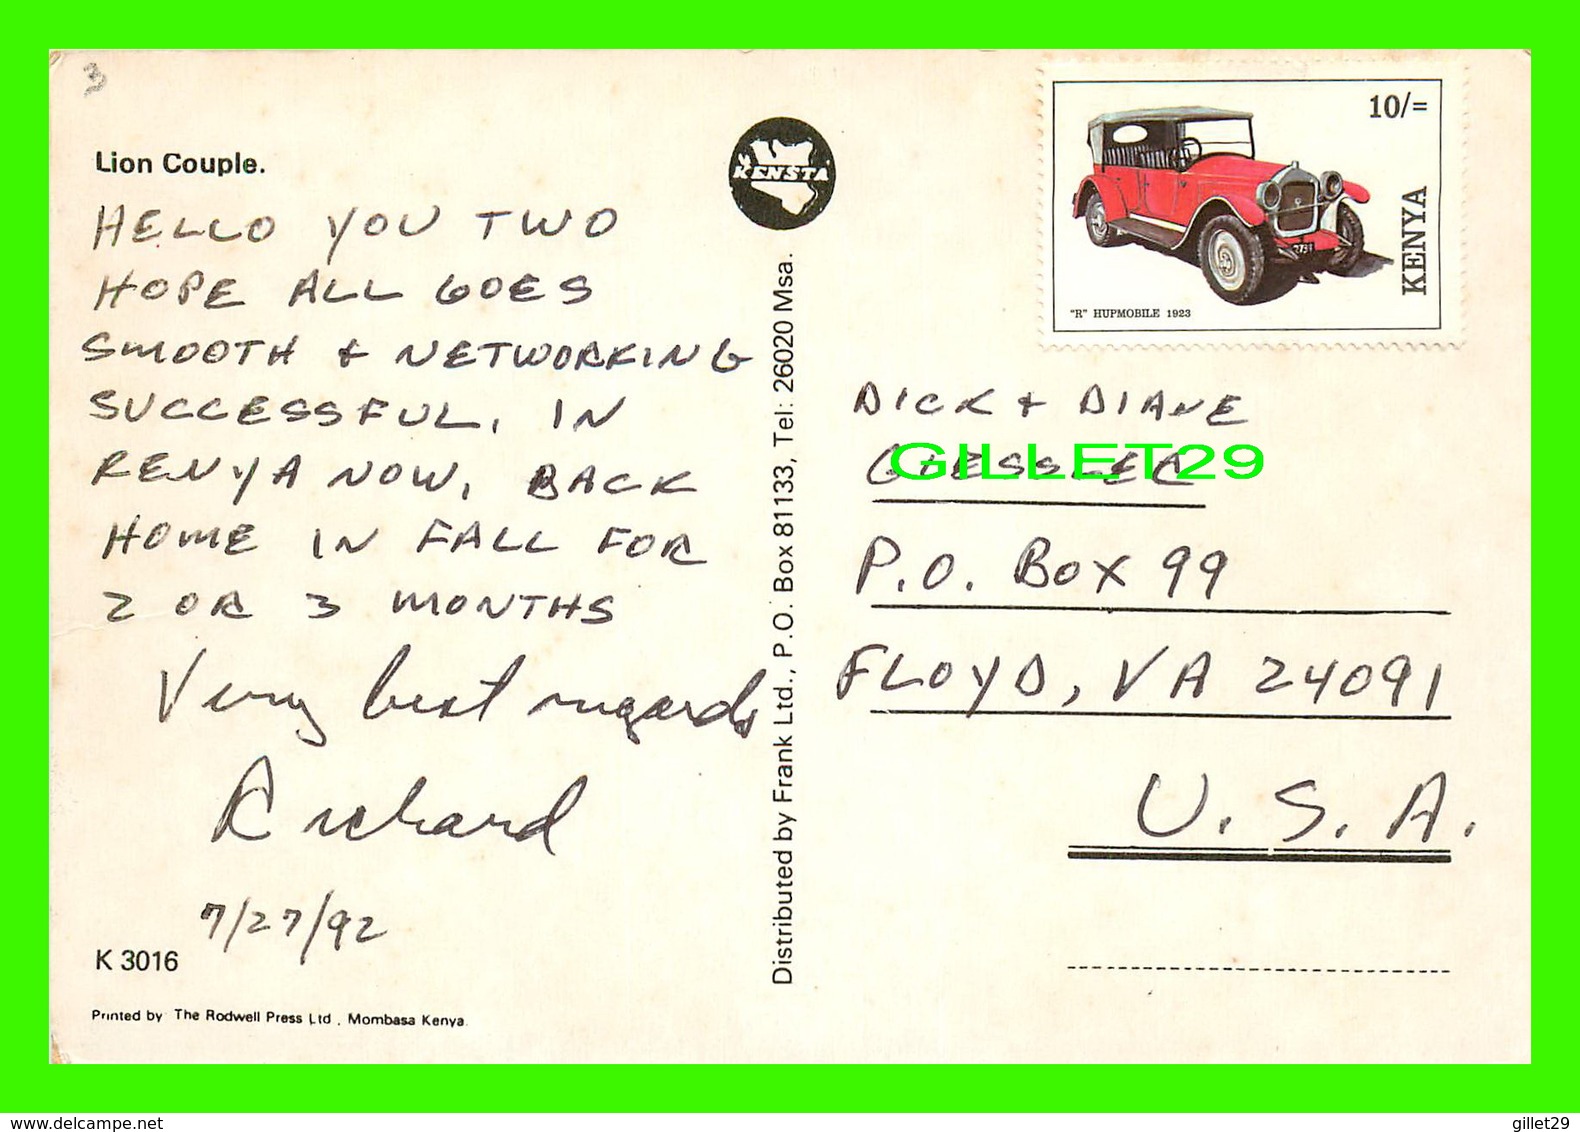 3
Lion Couple.
HELLO YOU TWO
HOPE ALL GOES
SMOOTH + NETWORKING
SUCCESSFUL. IN
KENYA NOW, BACK
HOME IN FALL FOR
2 OR 3 MONTHS
Very best regards
Richard
7/27/92
K 3016
Printed by The Rodwell Press Ltd., Mombasa Kenya.
KENSTA
Distributed by Frank Ltd., P.O. Box 81133, Tel: 26020 Msa.
10/=
KENYA
"R" HUPMOBILE 1923
DICK + DIANE
GILLET29
P.O. BOX 99
FLOYD, VA 24091
U.S.A.
www.delcampe.net
gillet29